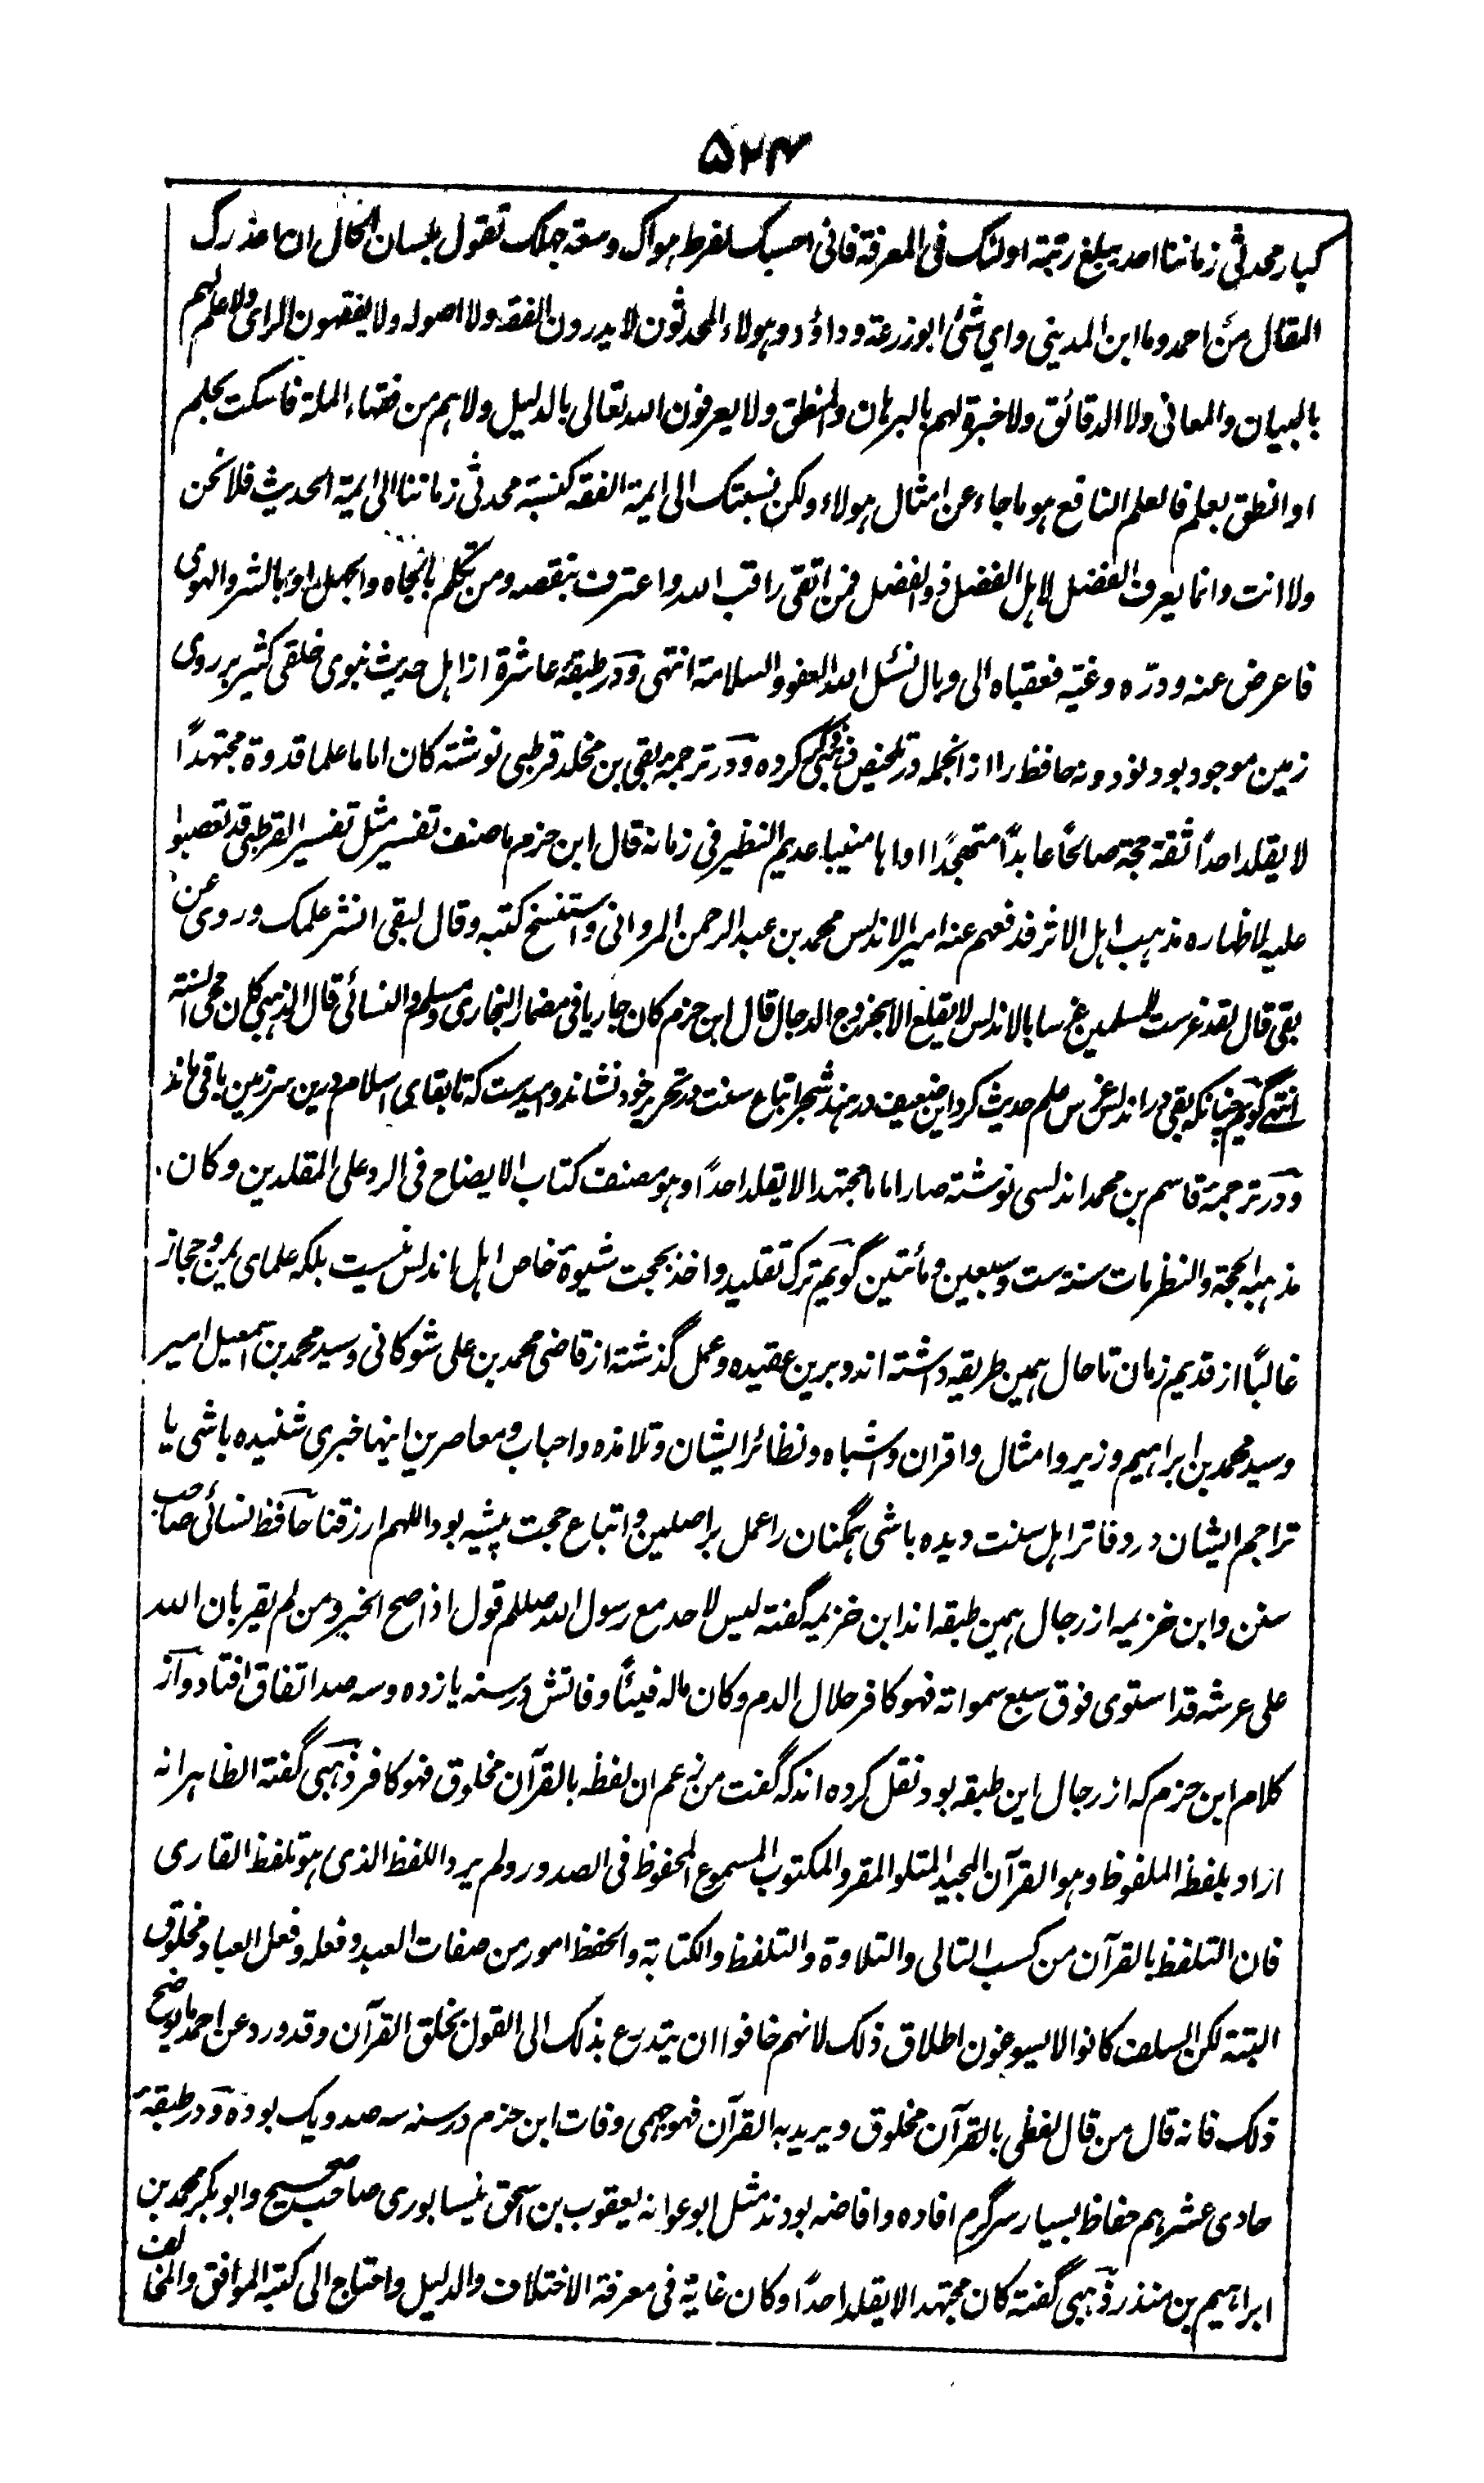 ۵۲۴
کبار محدثی زماننا احد یبلغ رتبة اولئک فی المعرفة فانی احسبک لفرط هواک وسعة جهلک تقول بلسان الحال ان اعذرک
المقال من احمد وما ابن المدینی وای شئ ابوزرعة وداؤد وهولاء المحدثون لا یدرون الفقه ولا اصوله ولا یفقهون الرای ولا علم لهم
بالبیان والمعانی ولا الدقائق ولا خبرة لهم بالبرهان والمنطق ولا یعرفون الله تعالی بالدلیل ولا هم من فقهاء الملة فاسکت بحلم
او انطق بعلم فالعلم النافع هو ما جاء عن امثال هولاء ولکن نسبتک الی ایمة الفقه کنسبة محدثی زماننا الی ایمة الحدیث فلا نحن
ولا انت وانما یعرف الفضل لاهل الفضل ذو الفضل فمن اتقی راقب الله واعترف بنقصه ومن تکلم بالجاه والجهل او بالشر والهوی
فاعرض عنه وذره وغیه فعقباه الی وبال نسئل الله العفو والسلامة انتهی ودر طبقۀ عاشرة از اهل حدیث نبوی خلقی کثیر بر روی
زمین موجود بود نود ونه حافظ را ازانجمله در تلخیص ذهبی ذکر کرده ودر ترجمۀ بقی بن مخلد قرطبی نوشته کان اماما علما قدوة مجتهدًا
لا یقلد احدًا ثقة حجة صالحًا عابدًا متهجدًا اواها منیبا عدیم النظیر فی زمانه قال ابن حزم ما صنف تفسیر مثل تفسیر القرطبی قد تعصبوا
علیه لاظهاره مذهب اهل الاثر فدفعهم عنه امیر الاندلس محمد بن عبد الرحمن المروانی واستنسخ کتبه وقال لبقی انشر علمک وروی عن
بقی قال لقد غرست للمسلمین غرسا بالاندلس لا یقلع الا بخروج الدجال قال ابن حزم کان جاریا فی مضمار البخاری ومسلم والنسائی قال الذهبی کان محی السنة
انتهی گویم چنانکه بقی در اندلس غرس علم حدیث کرد این ضعیف در هند شجر اتباع سنت در تحریر خود نشاند وامیدست که تا بقای اسلام درین سرزمین باقی ماند
ودر ترجمۀ قاسم بن محمد اندلسی نوشته صار اماما مجتهدا لا یقلد احدًا وهو مصنف کتاب الایضاح فی الرد علی المقلدین وکان
مذهبه الحجة والنظر مات سنة ست وسبعین ومائتین گویم ترک تقلید واخذ بحجت شیوۀ خاص اهل اندلس نیست بلکه علمای یمن وحجاز
غالبًا از قدیم زمان تا حال همین طریقه داشته اند وبرین عقیده وعمل گذشته از قاضی محمد بن علی شوکانی وسید محمد بن اسمعیل امیر
وسید محمد بن ابراهیم وزیر وامثال واقران واشباه ونظائر ایشان وتلامذه واحباب ومعاصرین اینها خبری شنیده باشی یا
تراجم ایشان در دفاتر اهل سنت دیده باشی همگنان را عمل بر اصلین واتباع حجت پیشه بود اللهم ارزقنا حافظ نسائی صاحب
سنن وابن خزیمه از رجال همین طبقه اند ابن خزیمه گفته لیس لاحد مع رسول الله صللم قول اذا صح الخبر ومن لم یقر بان الله
علی عرشه قد استوی فوق سبع سمواته فهو کافر حلال الدم وکان ماله فیئًا وفاتش در سنه یازده وسه صد اتفاق افتاد واز
کلام ابن حزم که از رجال این طبقه بود نقل کرده اند که گفت من زعم ان لفظه بالقرآن مخلوق فهو کافر ذهبی گفته الظاهر انه
اراد بلفظه الملفوظ وهو القرآن المجید المتلو المقرو المکتوب المسموع المحفوظ فی الصدور ولم یرد اللفظ الذی هو تلفظ القاری
فان التلفظ بالقرآن من کسب التالی والتلاوة والتلفظ والکتابة والحفظ امور من صفات العبد وفعله وفعل العباد مخلوق
البتة لکن السلف کانوا لا یسوغون اطلاق ذلک لانهم خافوا ان یتدرع بذلک الی القول بخلق القرآن وقد ورد عن احمد ما یوضح
ذلک فانه قال من قال لفظی بالقرآن مخلوق ویرید به القرآن فهو جهمی وفات ابن حزم در سنه سه صد ویک بوده ودر طبقۀ
حادی عشر هم حفاظ بسیار سرگرم افاده وافاضه بودند مثل ابو عوانه یعقوب بن اسحق نیسابوری صاحب صحیح وابو بکر محمد بن
ابراهیم بن منذر ذهبی گفته کان مجتهدا لا یقلد احدًا وکان غایة فی معرفة الاختلاف والدلیل واحتاج الی کتبه الموافق والمخالف